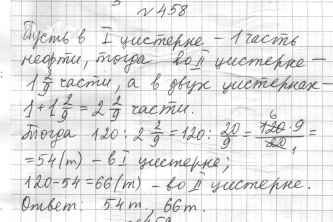 №458
Пусть в I цистерне – 1 часть
нефти, тогда во II цистерне –
1 2/9 части, а в двух цистернах –
1 + 1 2/9 = 2 2/9 части.
Тогда 120 : 2 2/9 = 120 : 20/9 = 6 120 · 9 / 20 1 =
= 54 (т) – в I цистерне;
120 – 54 = 66 (т) – во II цистерне.
Ответ: 54 т, 66 т.